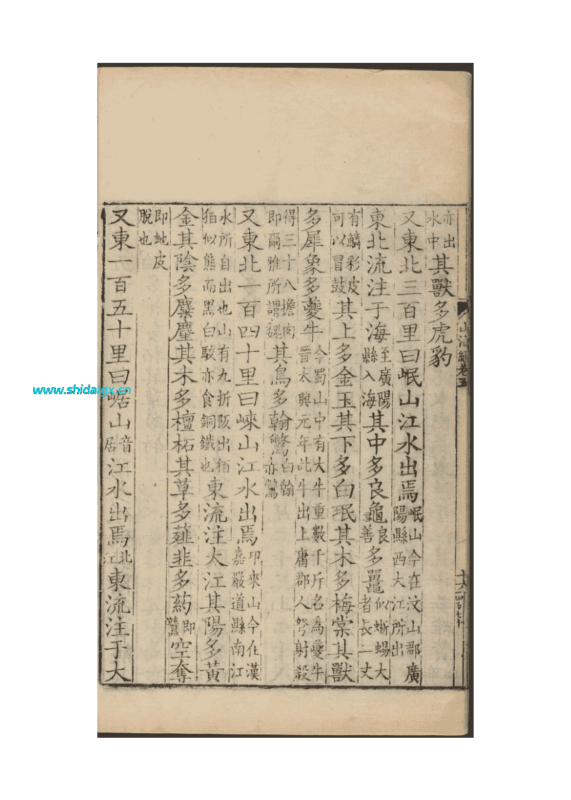 山海經卷五
亦出水中其獸多虎豹
又東北三百里曰岷山江水出焉岷山今在汶山郡廣陽縣西大江所出
東北流注于海至廣陽縣入海其中多良龜良善多鼉似蜥蜴大者長二丈
有鱗彩皮可以冒鼓其上多金玉其下多白珉其木多梅棠其獸
多犀象多夔牛今蜀山中有大牛重數千斤名為夔牛晉太興元年此牛出上庸郡人弩射殺
得三十八擔肉即爾雅所謂魏其鳥多翰鷩白翰赤鷩
又東北一百四十里曰崍山江水出焉卭來山今在漢嘉嚴道縣南江
水所自出也山有九折阪出狛狛似熊而黑白駁亦食銅鐵也東流注大江其陽多黃
金其陰多麋麈其木多檀柘其草多薤韭多葯即虈空奪
即蛇皮脫也
又東一百五十里曰崌山音居江水出焉北江東流注于大
www.shidianguji.com